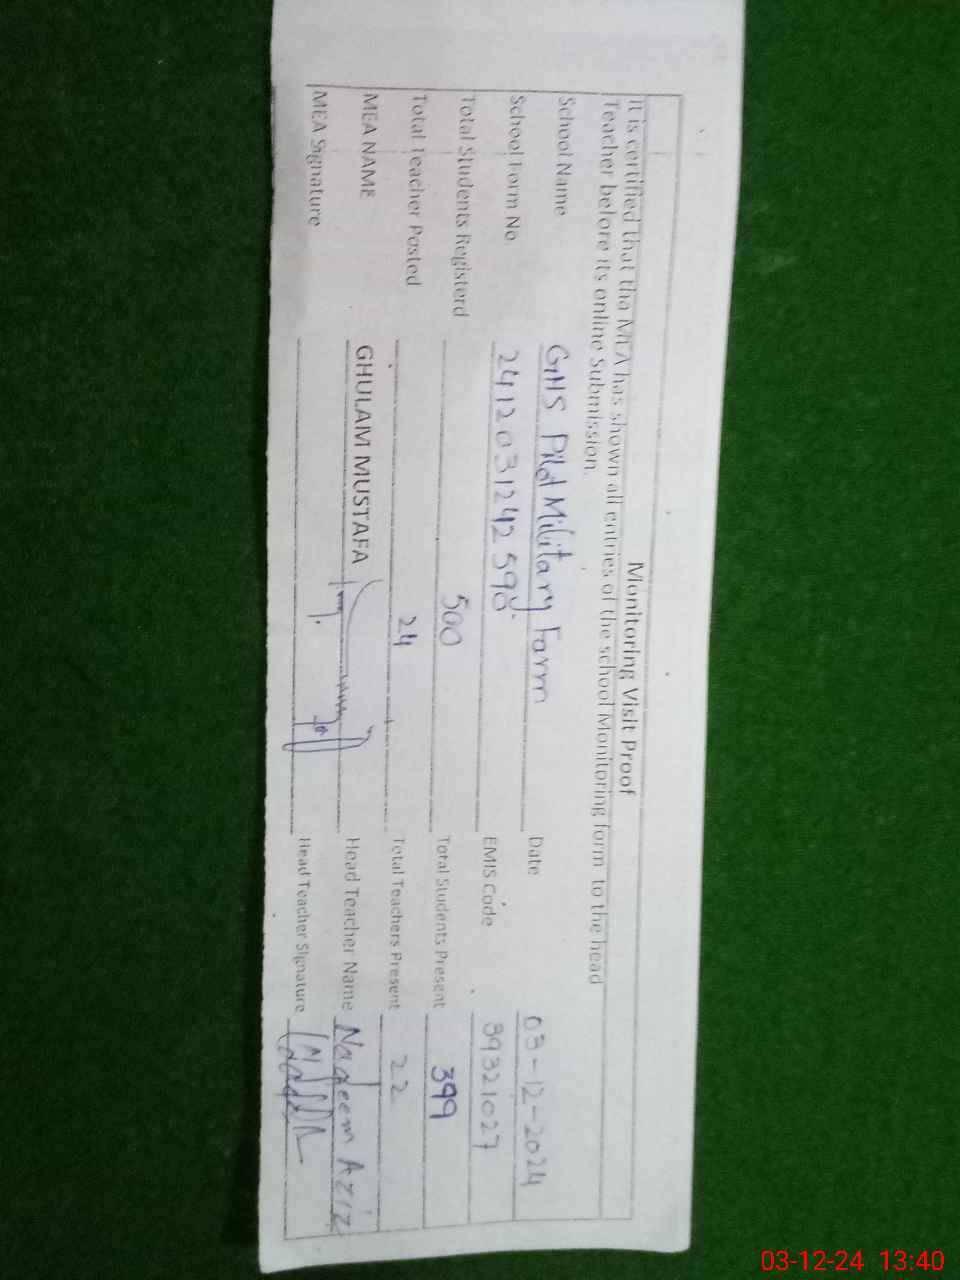 Monitoring Visit Proof
It is certified that tha MEA has shown all entries of the school Monitoring form to the head
Teacher before its online Submission.
School Name GHS Pilot Military Farm Date 03-12-2024
School Form No. 2412031242598 EMIS Code 39321027
Total Students Registerd 500 Total Students Present 399
Total Teacher Posted 24 Total Teachers Present 22
MEA NAME GHULAM MUSTAFA Head Teacher Name Nadeem Aziz
MEA Signature Head Teacher Signature
03-12-24 13:40